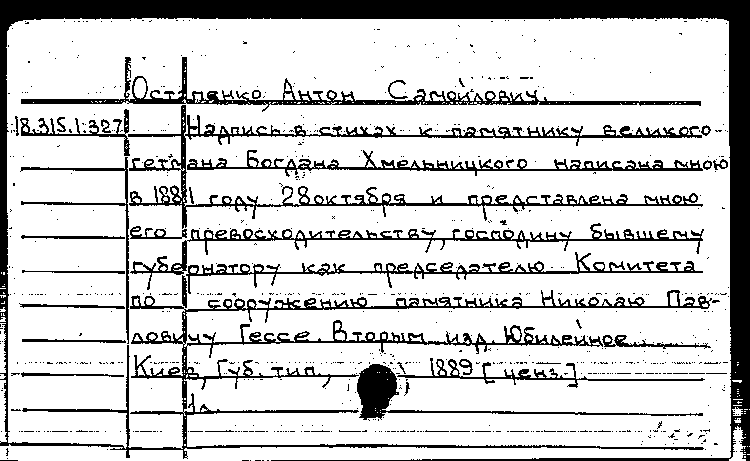 Остапенко, Антон Самойлович.
18.315.1.327 Надпись в стихах к памятнику великого
гетмана Богдана Хмельницкого написана мною
в 1881 году 28 октября и представлена мною
его превосходительству, господину бывшему
губернатору как председателю Комитета
по сооружению памятника Николаю Пав-
ловичу Гессе. Вторым изд. Юбилейное
Киев, Губ. тип., 1889 [ценз.].
1л.